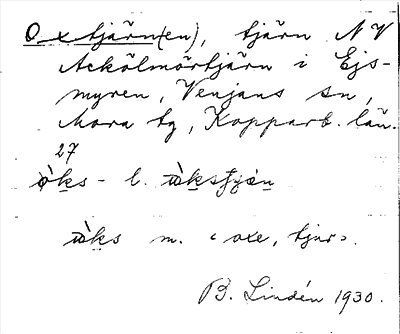 Oxtjärn(en), tjärn NV
Ackölmörtjärn i Ejs-
myren, Venjans sn,
Mora tg, Kopparb. län.
27
òks- l. ɯ̀ksfjɑ̣n
ɯ̀ks m. ‹ oxe, tjur ›.
B. Lindén 1930.